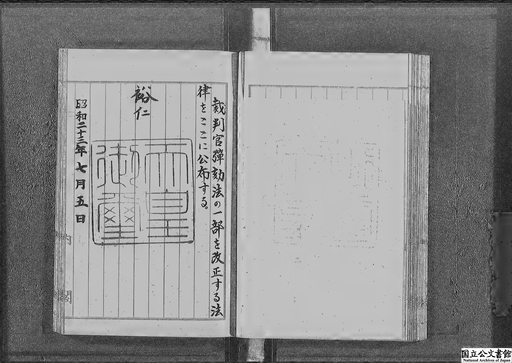 裁判官彈劾法の一部を改正する法
律をここに公布する。
裕仁
天皇
御璽
昭和二十三年七月五日
内閣
国立公文書館
National Archives of Japan